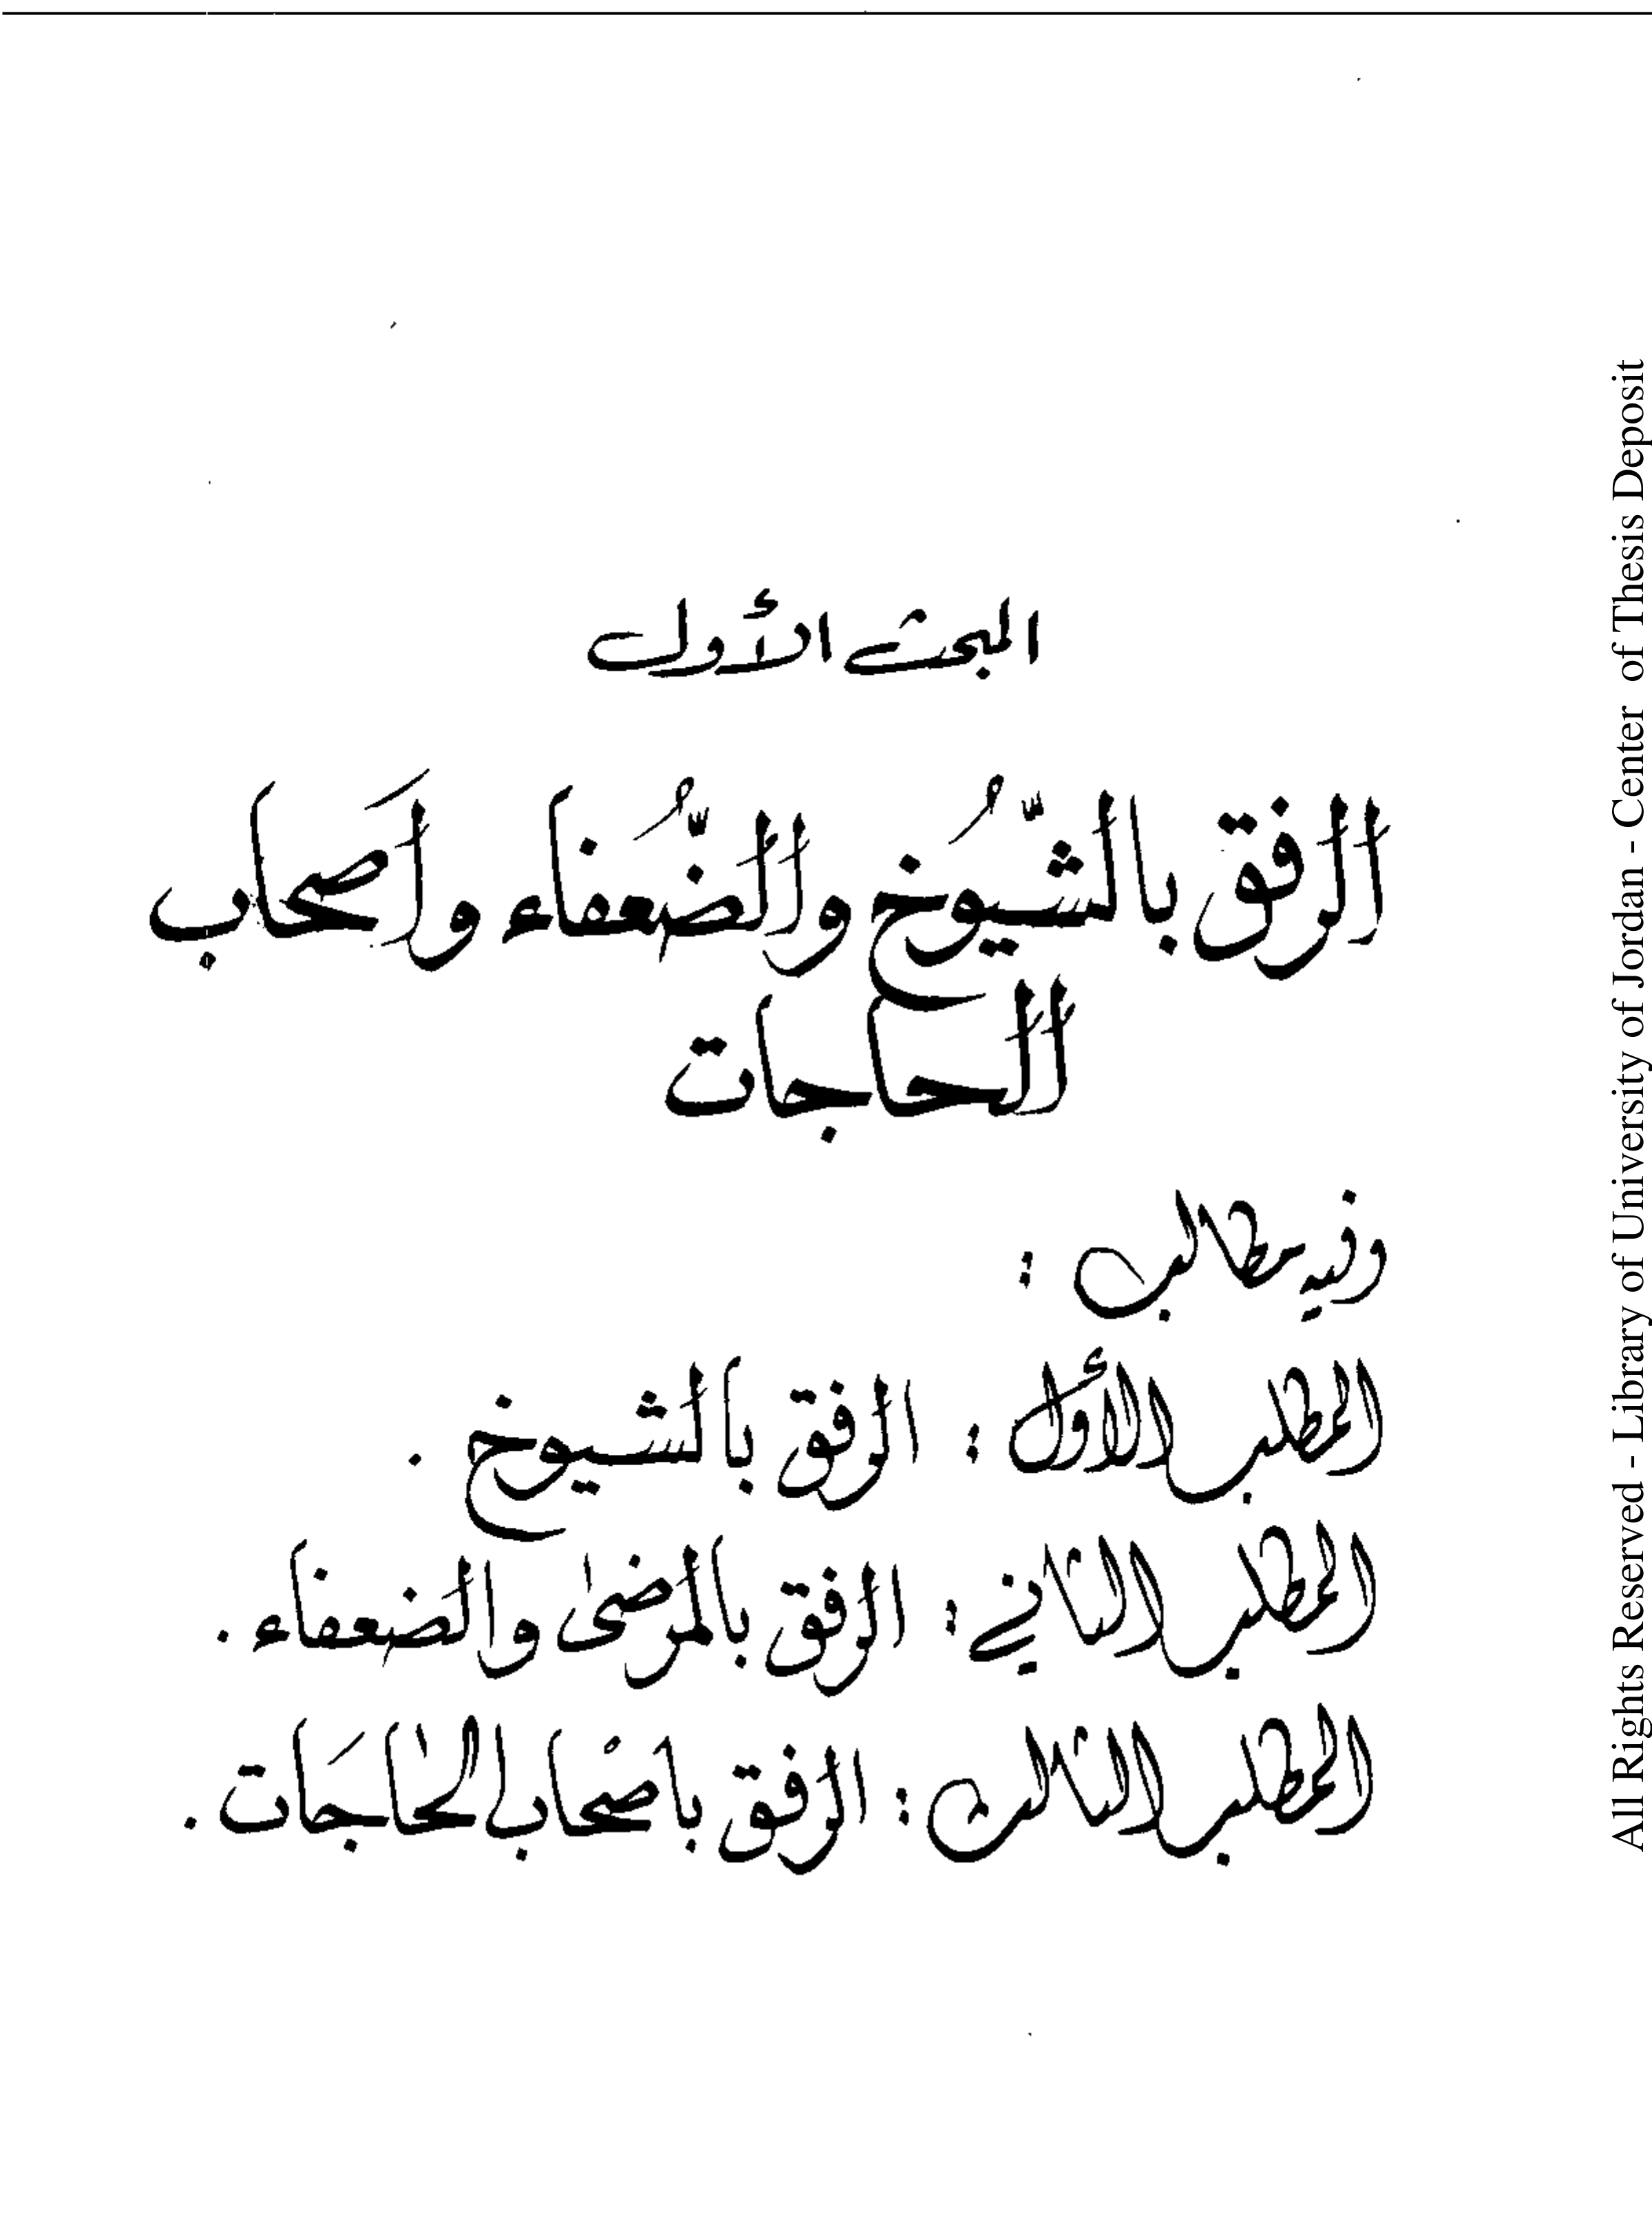 المبحث الأول
الرفق بالشّيُوخ والضّعُفاء وأصَحاب
الحاجات
وفيه مطالب :
المطلب الأول : الرفق بالشيوخ .
المطلب الثاني : الرفق بالمرضى والضعفاء .
المطلب الثالث : الرفق بأصْحاب الحاجَات .
All Rights Reserved - Library of University of Jordan - Center of Thesis Deposit